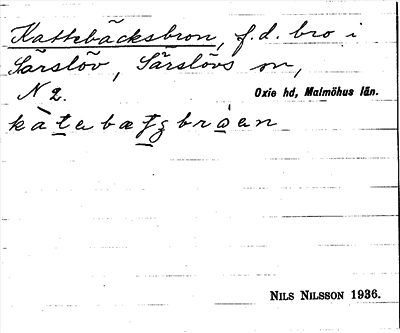 Kattebäcksbron, f.d. bro i
Särslöv, Särslövs sn,
N 2. Oxie hd, Malmöhus län.
kàtebæʃgbrɷen
NILS NILSSON 1936.